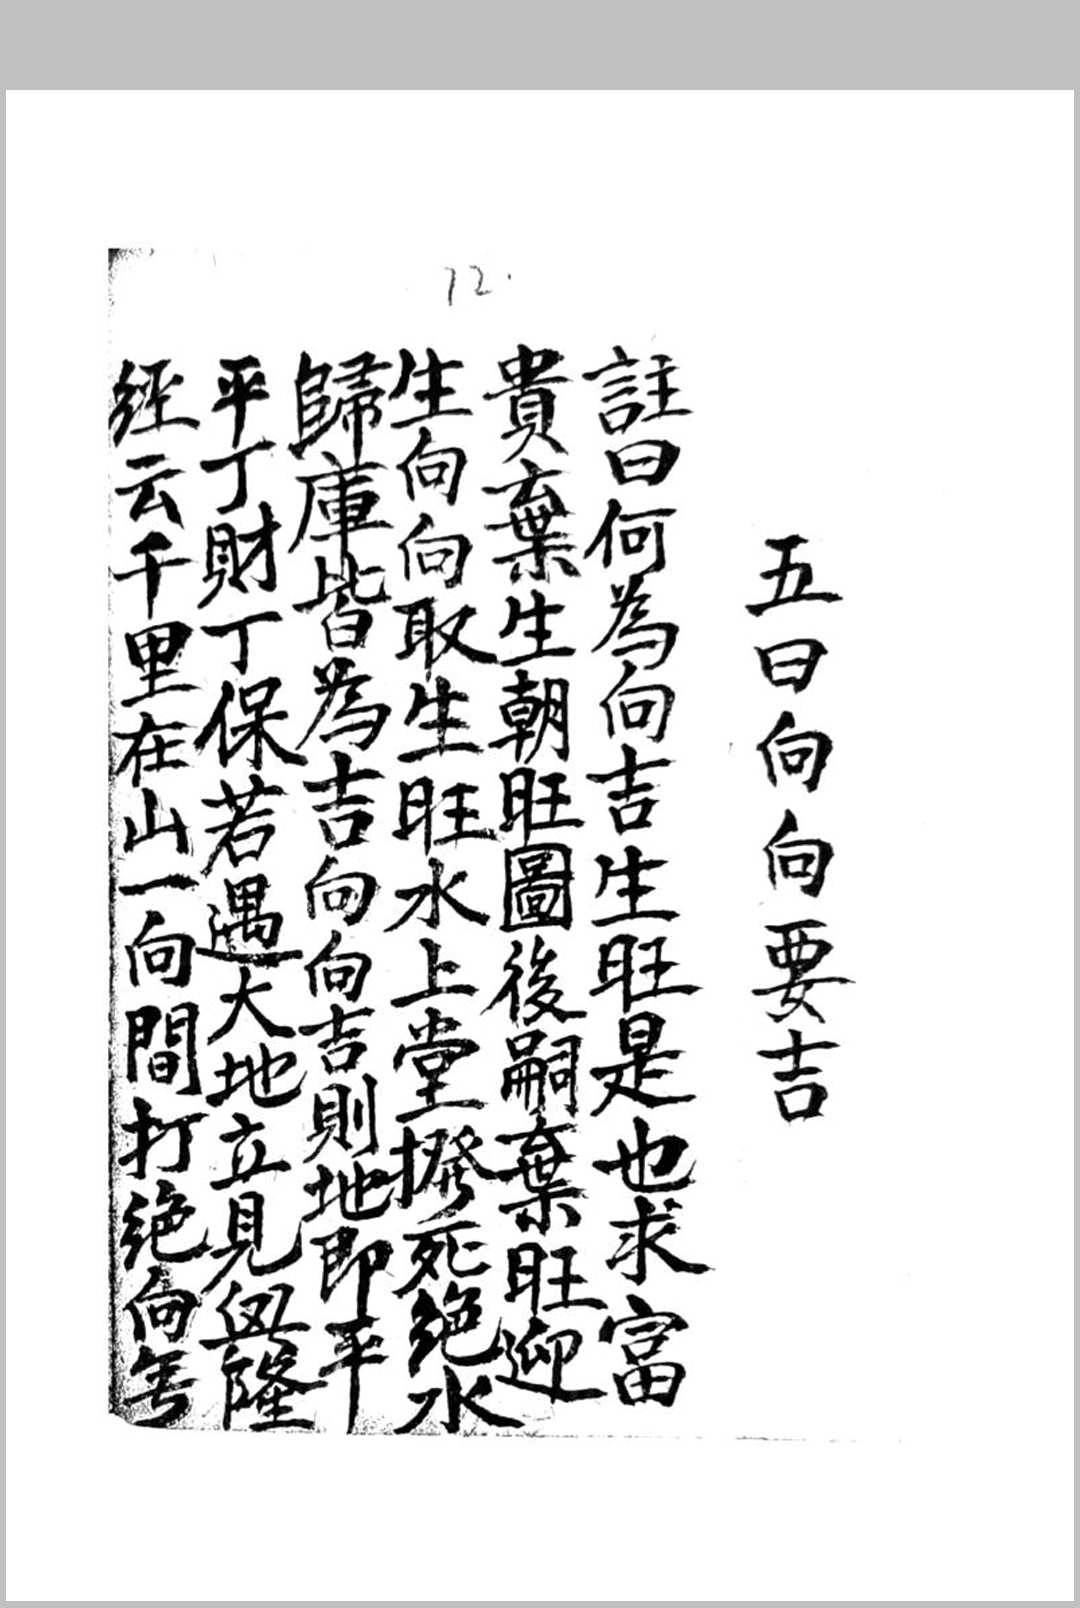 12.
五曰向向要吉
註曰何為向吉生旺是也求富
貴棄生朝旺圖後嗣棄旺迎
生向向取生旺水上堂撥死絕水
歸庫皆為吉向向吉則地即平
平丁財丁保若遇大地立見興隆
經云千里在山一向間打絕向